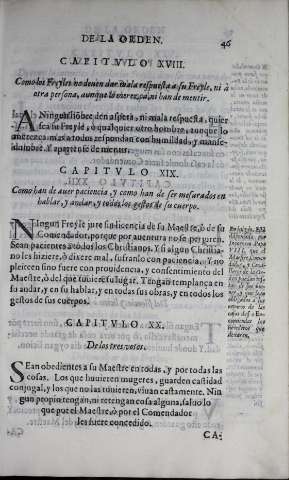 DE LA ORDEN. 46
CAPITVLO XVIII.
Como los Freyles no deuen dar mala respuesta a su Freyle, ni à
otra persona, aunque lo merezca, ni han de mentir.
A Ningun hõbre den aspera, ni mala respuesta, quier
sea su Freyle, ò qualquier otro hombre, aunque lo
merezca mas a todos respondan con humildad, y manse-
dumbre. Y apartese de mentir.
CAPITVLO XIX.
Como han de auer paciencia, y como han de ser mesurados en
hablar, y andar, y todos los gestos de su cuerpo.
NIngun Freyle jure sin licencia de su Maestre, ò de su
Comendador, porque por auentura no se perjuren.
Sean pacientes à todos los Christianos. Y si algun Christia-
no les hiziere, ò dixere mal, sufranlo con paciencia. Y no
pleiteen sino fuere con prouidencia, y consentimiento del
Maestre, ò del que tuuiere su lugar. Tengan templança en
su andar, y en su hablar, y en todas sus obras, y en todos los
gestos de sus cuerpos.
CAPITVLO XX.
De los tres votos.
SEan obedientes a su Maestre en todas, y por todas las
cosas. Los que huuieren mugeres, guarden castidad
conjugal, y los que no las tuuieren, viuan castamente. Nin
gun propio tengan, ni retengan cosa alguna, saluo lo
que por el Maestre, ò por el Comendador
les fuere concedido.
CA-